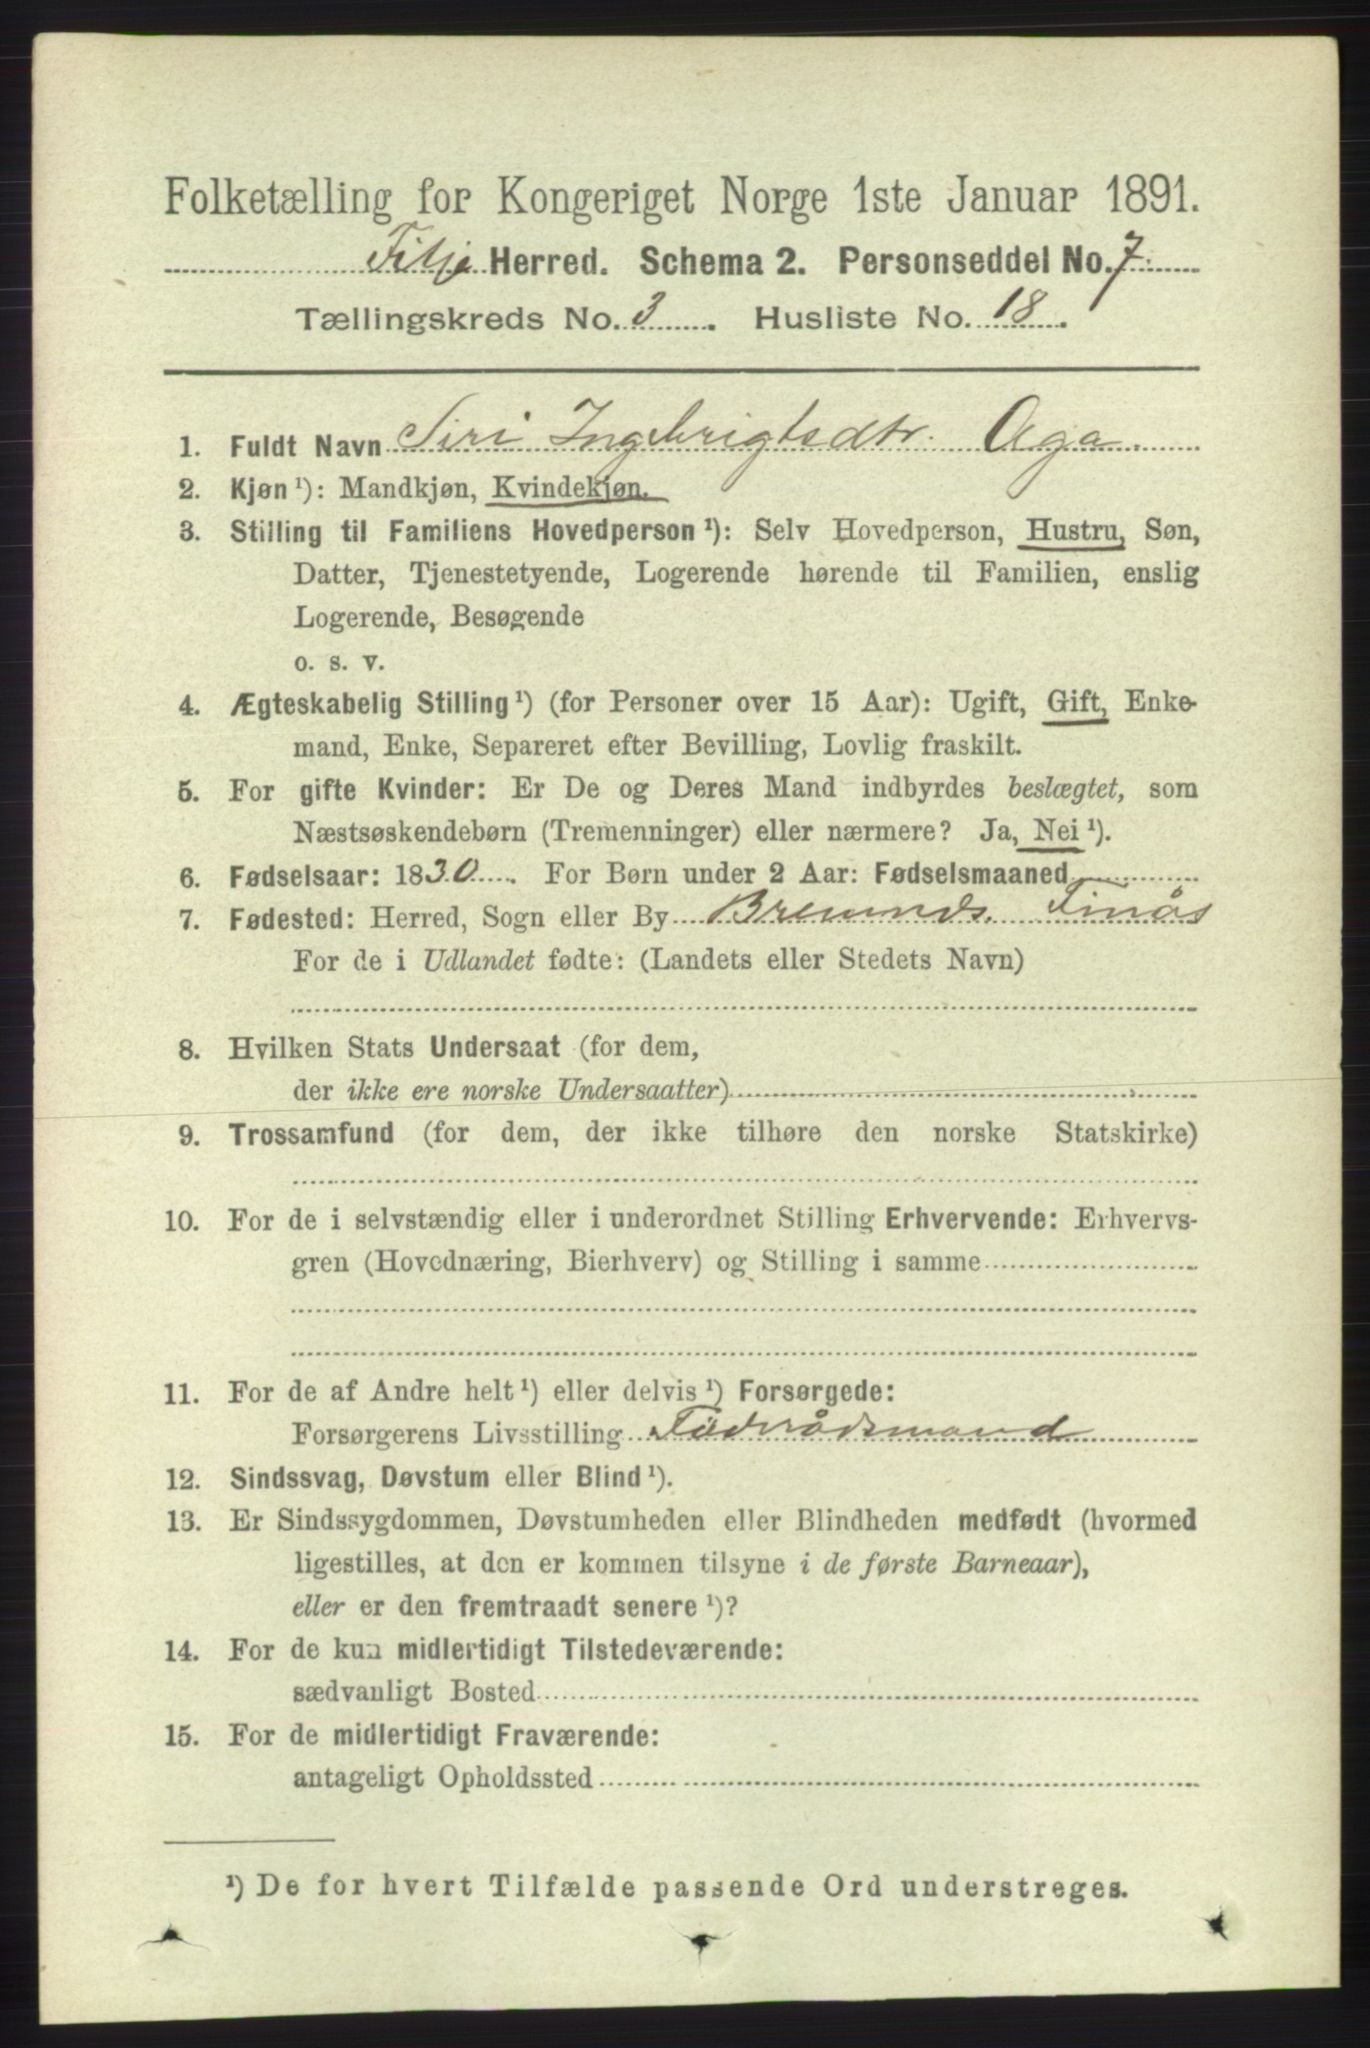 Folketælling for Kongeriget Norge 1ste Januar 1891.
Fitje Herred. Schema 2. Personseddel No. 7
Tællingskreds No. 3. Husliste No. 18.
1. Fuldt Navn Siri Ingebrigtsdtr. Aga
2. Kjøn ¹): Mandkjøn, Kvindekjøn.
3. Stilling til Familiens Hovedperson ¹): Selv Hovedperson, Hustru, Søn,
Datter, Tjenestetyende, Logerende hørende til Familien, enslig
Logerende, Besøgende
o. s. v.
4. Ægteskabelig Stilling ¹) (for Personer over 15 Aar): Ugift, Gift, Enke-
mand, Enke, Separeret efter Bevilling, Lovlig fraskilt.
5. For gifte Kvinder: Er De og Deres Mand indbyrdes beslægtet, som
Næstsøskendebørn (Tremenninger) eller nærmere? Ja, Nei ¹).
6. Fødselsaar: 1830. For Børn under 2 Aar: Fødselsmaaned
7. Fødested: Herred, Sogn eller By Bremnds. Finås
For de i Udlandet fødte: (Landets eller Stedets Navn)
8. Hvilken Stats Undersaat (for dem,
der ikke ere norske Undersaatter)
9. Trossamfund (for dem, der ikke tilhøre den norske Statskirke)
10. For de i selvstændig eller i underordnet Stilling Erhvervende: Erhvervs-
gren (Hovednæring, Bierhverv) og Stilling i samme
11. For de af Andre helt ¹) eller delvis ¹) Forsørgede:
Forsørgerens Livsstilling Föderådsmand
12. Sindssvag, Døvstum eller Blind ¹).
13. Er Sindssygdommen, Døvstumheden eller Blindheden medfødt (hvormed
ligestilles, at den er kommen tilsyne i de første Barneaar),
eller er den fremtraadt senere ¹)?
14. For de kun midlertidigt Tilstedeværende:
sædvanligt Bosted
15. For de midlertidigt Fraværende:
antageligt Opholdssted
¹) De for hvert Tilfælde passende Ord understreges.